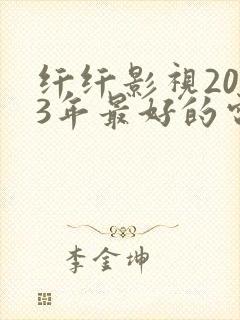 纤纤影視20
3年最好的
李金坤